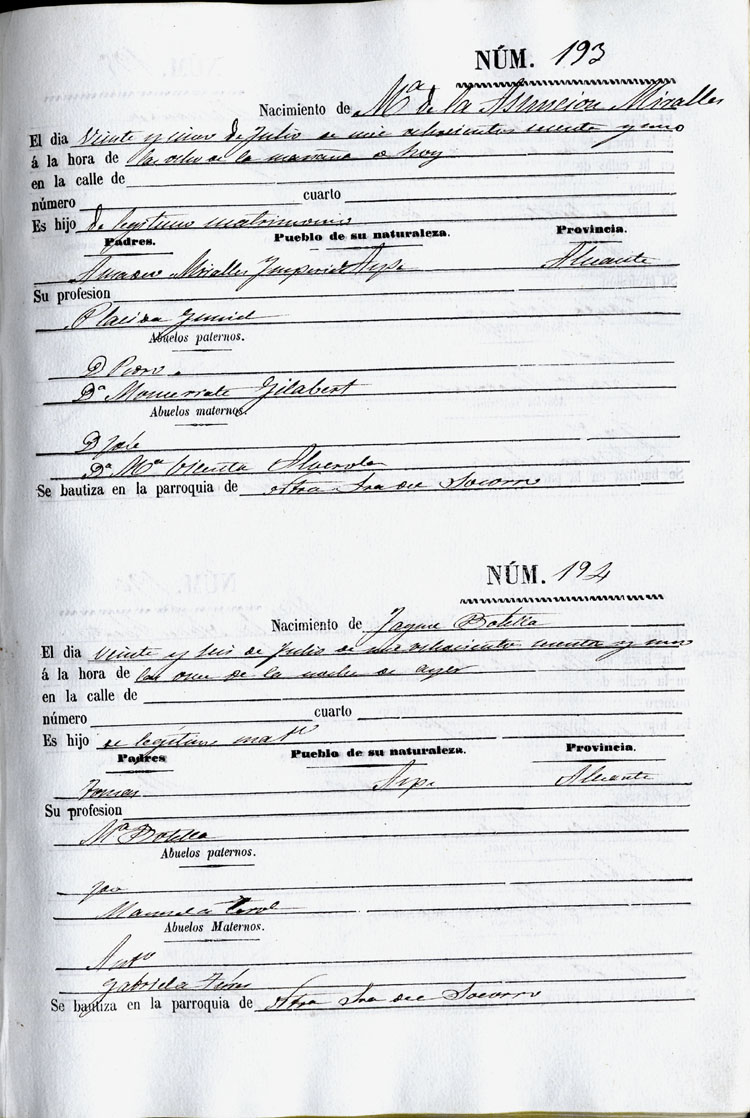 NÚM. 193
Nacimiento de Mª de la Asuncion Miralles
El dia Veinte y cinco de Julio de mil ochocientos sesenta y uno
á la hora de las ocho de la mañana de hoy
en la calle de
número cuarto
Es hijo de legitimo matrimonio
Padres. Pueblo de su naturaleza. Provincia.
Amador Miralles Aspe Alicante
Su profesion
Placida
Abuelos paternos.
D Pedro
Dª Monserrate Gilabert
Abuelos maternos.
D José
Dª Mª Vicenta
Se bautiza en la parroquia de Ntra Sra del Socorro
NÚM. 194
Nacimiento de Jayme Botella
El dia veinte y seis de Julio de mil ochocientos sesenta y uno
á la hora de las once de la noche de ayer
en la calle de
número cuarto
Es hijo de legitimo matº
Padres Pueblo de su naturaleza. Provincia.
Tomas Aspe Alicante
Su profesion
Mª Botella
Abuelos paternos.
Manuela
Abuelos Maternos.
Antº
Gabriela
Se bautiza en la parroquia de Ntra Sra del Socorro